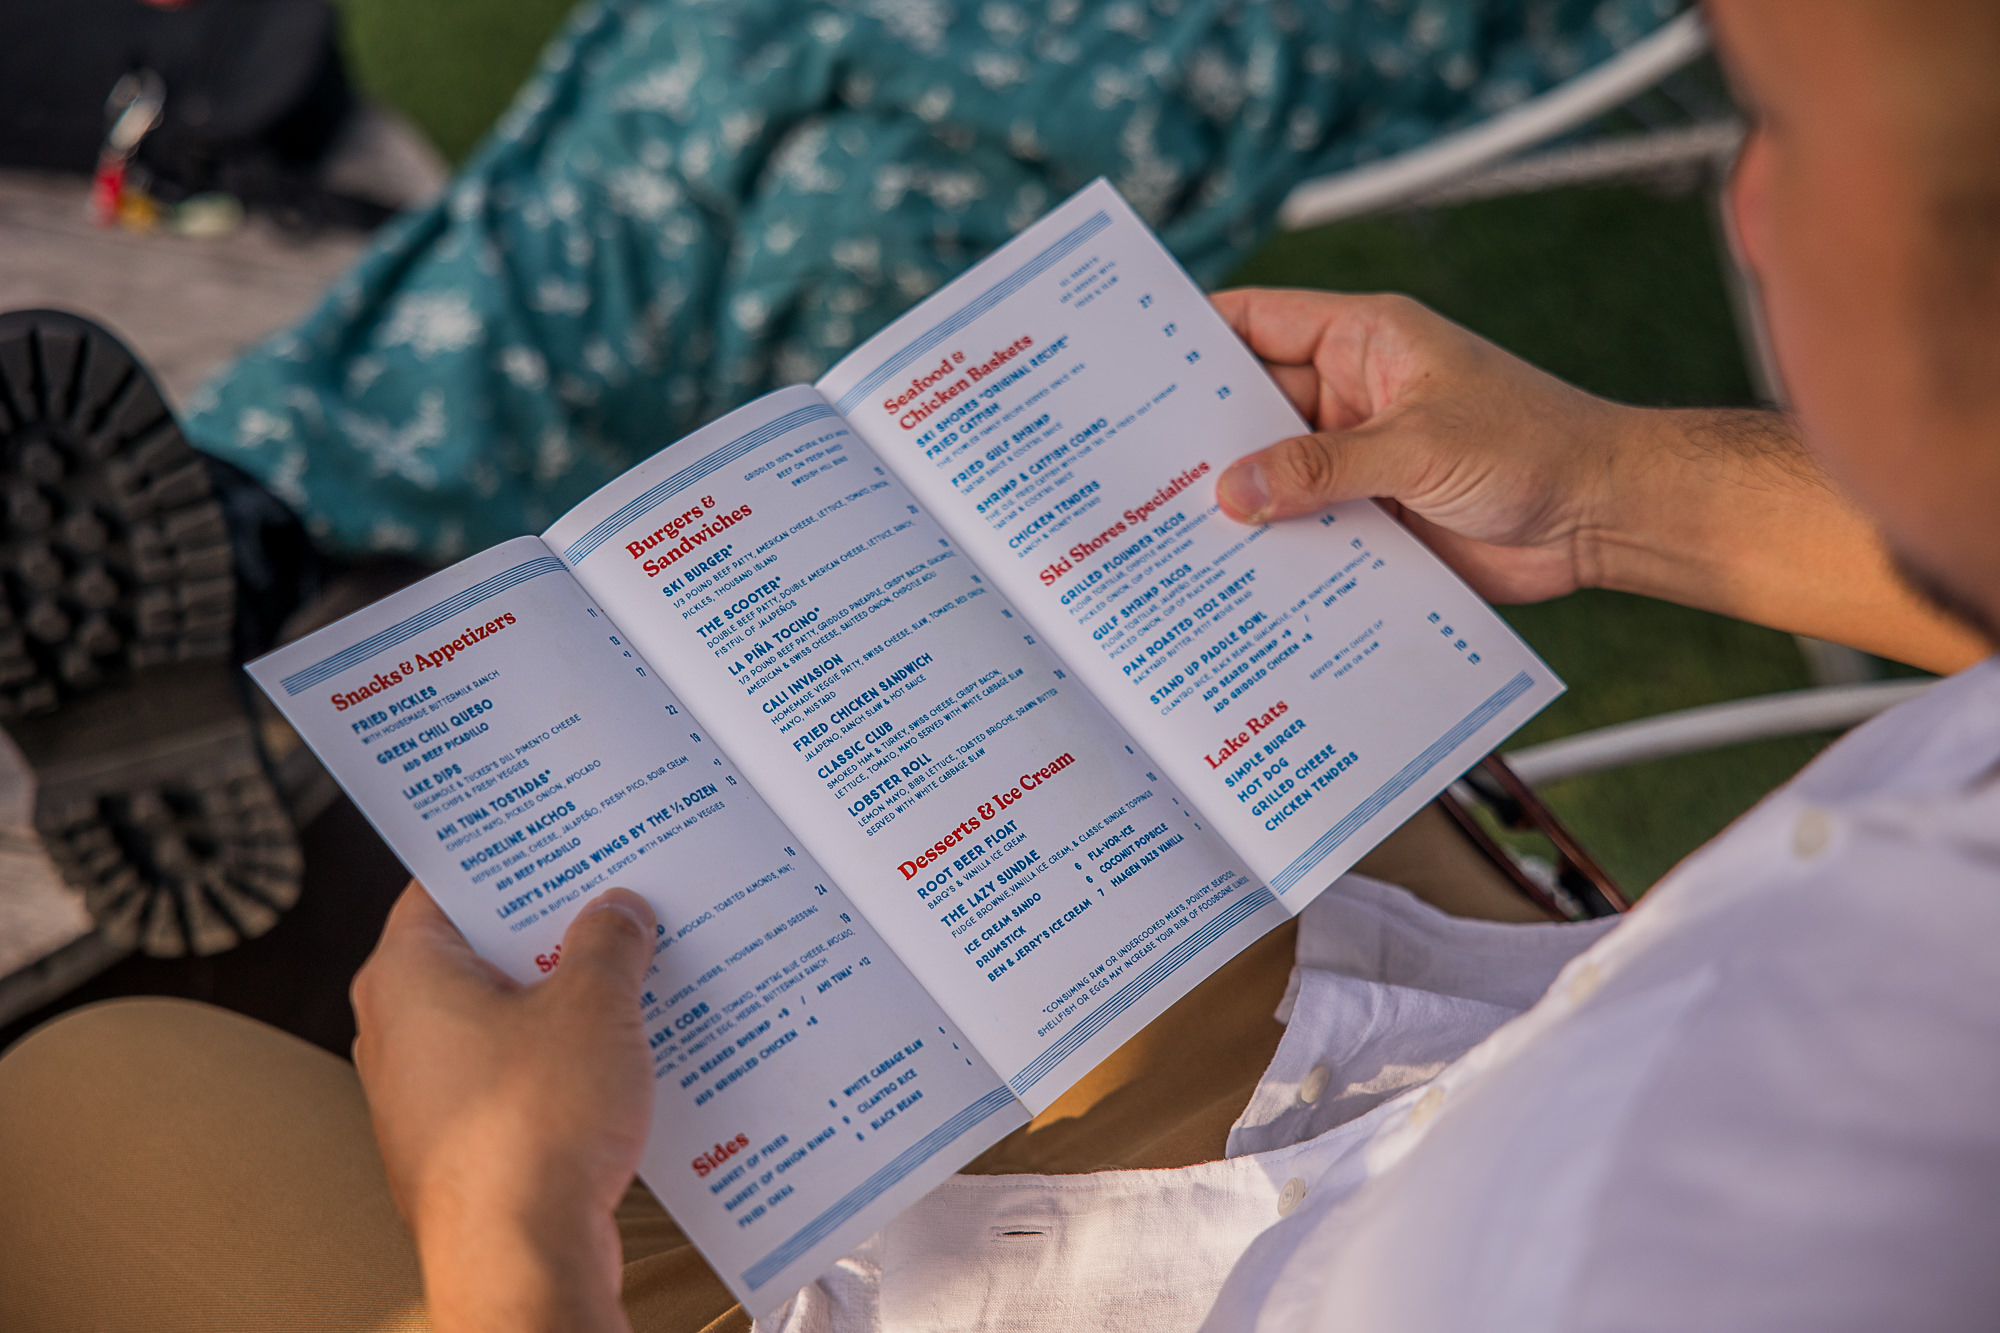 Snacks & Appetizers
FRIED PICKLES 11
WITH HOUSEMADE BUTTERMILK RANCH
GREEN CHILI QUESO 13
ADD BEEF PICADILLO
LAKE DIPS 17
GUACAMOLE & TUCKER'S DILL PIMENTO CHEESE
WITH CHIPS & FRESH VEGGIES
AHI TUNA TOSTADAS* 22
CHIPOTLE MAYO, PICKLED ONION, AVOCADO
SHORELINE NACHOS 19
REFRIED BEANS, CHEESE, JALAPEÑO, FRESH PICO, SOUR CREAM
ADD BEEF PICADILLO +3
LARRY'S FAMOUS WINGS BY THE ½ DOZEN 15
TOSSED IN BUFFALO SAUCE, SERVED WITH RANCH AND VEGGIES
16
AVOCADO, TOASTED ALMONDS, MINT,
24
CAPERS, HERBS, THOUSAND ISLAND DRESSING
COBB 19
MARINATED TOMATO, MAYTAG BLUE CHEESE, AVOCADO,
MINUTE EGG, HERBS, BUTTERMILK RANCH
ADD SEARED SHRIMP +9 / AHI TUNA* +12
ADD GRIDDLED CHICKEN +8
Sides
BASKET OF FRIES 8 WHITE CABBAGE SLAW
BASKET OF ONION RINGS 9 CILANTRO RICE
FRIED OKRA BLACK BEANS
Burgers &
Sandwiches
GRIDDLED 100% NATURAL BLACK ANGUS
BEEF ON FRESH BAKED
SWEDISH HILL BUNS
SKI BURGER*
1/3 POUND BEEF PATTY, AMERICAN CHEESE, LETTUCE, TOMATO, ONION,
PICKLES, THOUSAND ISLAND
THE SCOOTER*
DOUBLE BEEF PATTY, DOUBLE AMERICAN CHEESE, LETTUCE, RANCH,
FISTFUL OF JALAPEÑOS
LA PIÑA TOCINO*
1/3 POUND BEEF PATTY, GRIDDLED PINEAPPLE, CRISPY BACON, GUACAMOLE,
AMERICAN & SWISS CHEESE, SAUTEED ONION, CHIPOTLE AIOLI
CALI INVASION
HOMEMADE VEGGIE PATTY, SWISS CHEESE, SLAW, TOMATO, RED ONION,
MAYO, MUSTARD
FRIED CHICKEN SANDWICH
JALAPENO, RANCH SLAW & HOT SAUCE
CLASSIC CLUB 22
SMOKED HAM & TURKEY, SWISS CHEESE, CRISPY BACON,
LETTUCE, TOMATO, MAYO SERVED WITH WHITE CABBAGE SLAW
LOBSTER ROLL
LEMON MAYO, BIBB LETTUCE, TOASTED BRIOCHE, DRAWN BUTTER
SERVED WITH WHITE CABBAGE SLAW
Desserts & Ice Cream
ROOT BEER FLOAT
BARQ'S & VANILLA ICE CREAM
THE LAZY SUNDAE 10
FUDGE BROWNIE, VANILLA ICE CREAM, & CLASSIC SUNDAE TOPPINGS
ICE CREAM SANDO 6 FLA-VOR-ICE
DRUMSTICK 6 COCONUT POPSICLE
BEN & JERRY'S ICE CREAM 7 HAAGEN DAZS VANILLA
*CONSUMING RAW OR UNDERCOOKED MEATS, POULTRY, SEAFOOD,
SHELLFISH OR EGGS MAY INCREASE YOUR RISK OF FOODBORNE ILLNESS.
Seafood &
Chicken Baskets
SKI SHORES "ORIGINAL RECIPE"
FRIED CATFISH 27
THE FOWLER FAMILY RECIPE SERVED SINCE 1954
FRIED GULF SHRIMP
TARTAR SAUCE & COCKTAIL SAUCE
SHRIMP & CATFISH COMBO
THE O.G. FRIED CATFISH WITH OUR TAIL ON FRIED GULF SHRIMP
TARTAR & COCKTAIL SAUCE
CHICKEN TENDERS
RANCH & HONEY MUSTARD
Ski Shores Specialties
GRILLED FLOUNDER TACOS
FLOUR TORTILLAS, CHIPOTLE MAYO, SHREDDED
PICKLED ONION, CUP OF BLACK BEANS
GULF SHRIMP TACOS
FLOUR TORTILLAS, JALAPEÑO CREMA, SHREDDED CABBAGE
PICKLED ONION, CUP OF BLACK BEANS
PAN ROASTED 12OZ RIBEYE*
BACKYARD BUTTER, PETIT WEDGE SALAD
STAND UP PADDLE BOWL 17
CILANTRO RICE, BLACK BEANS, GUACAMOLE, SLAW, SUNFLOWER SPROUTS
ADD SEARED SHRIMP +9 / AHI TUNA* +12
ADD GRIDDLED CHICKEN +8
Lake Rats
SERVED WITH CHOICE OF
FRIES OR SLAW
SIMPLE BURGER
HOT DOG 10
GRILLED CHEESE 10
CHICKEN TENDERS